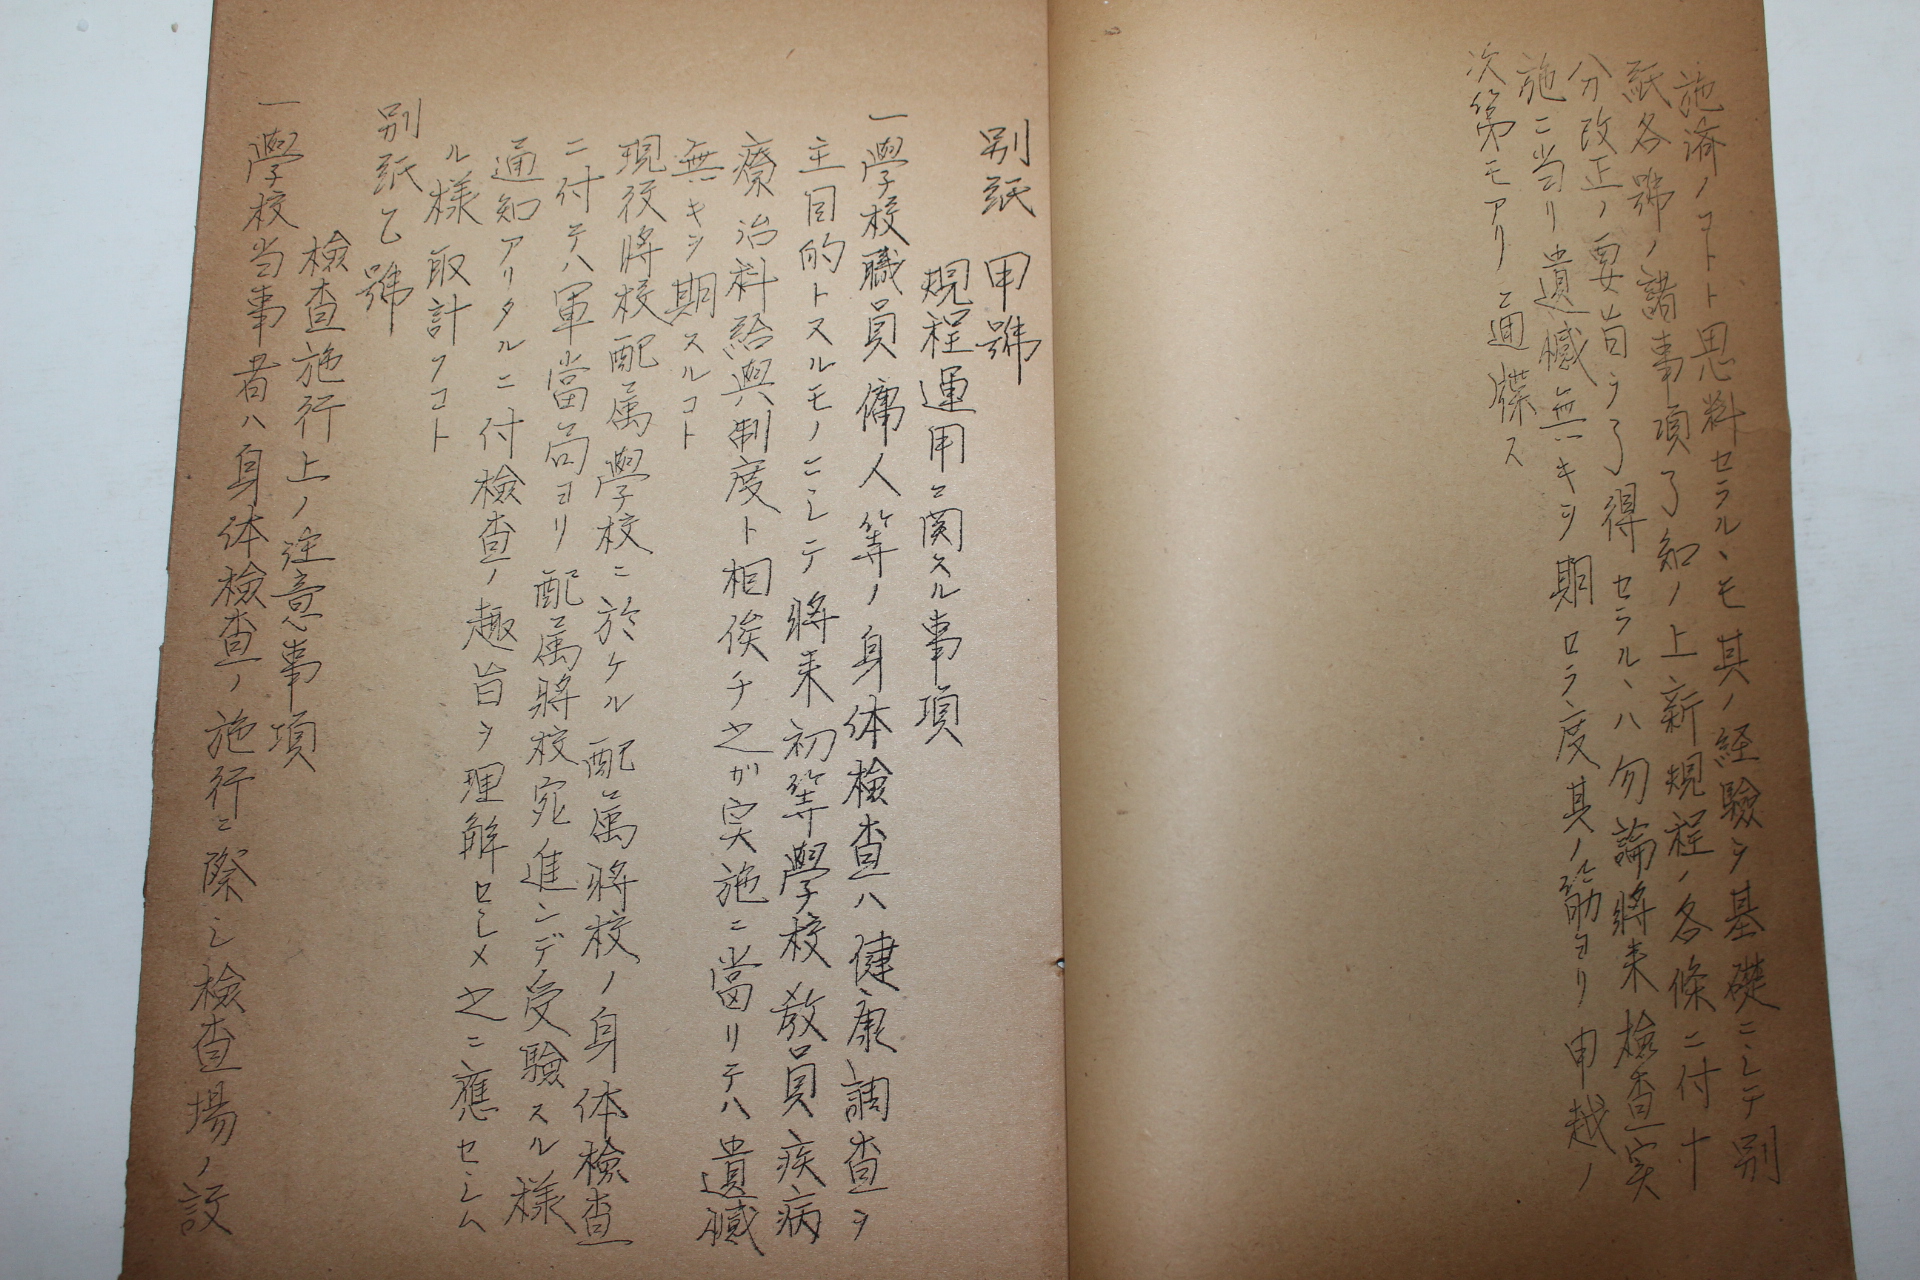 施済ノコトト思料セラルヽモ其ノ経驗ヲ基礎ニシテ別
紙各號ノ諸事項了知ノ上新規程ノ各條ニ付十
分改正ノ要旨ヲ了得セラルヽハ勿論將来檢査実
施ニ当リ遺憾無キヲ期セラレ度其ノ筋ヨリ申越ノ
次第モアリ此通牒ス
別紙甲號
規程運用ニ関スル事項
一學校職員傭人等ノ身体檢査ハ健康調査ヲ
主目的トスルモノニシテ將来初等學校教員疾病
療治料給與制度ト相俟チ之ガ実施ニ當リテハ遺憾
無キヲ期スルコト
現役將校配属學校ニ於ケル配属將校ノ身体檢査
ニ付テハ軍當局ヨリ配属將校宛進ンデ受驗スル樣
通知アリタルニ付檢査ノ趣旨ヲ理解セシメ之ニ應セシム
ル樣取計フコト
別紙乙號
檢査施行上ノ注意事項
一學校当事者ハ身体檢査ノ施行ニ際シ檢査場ノ設